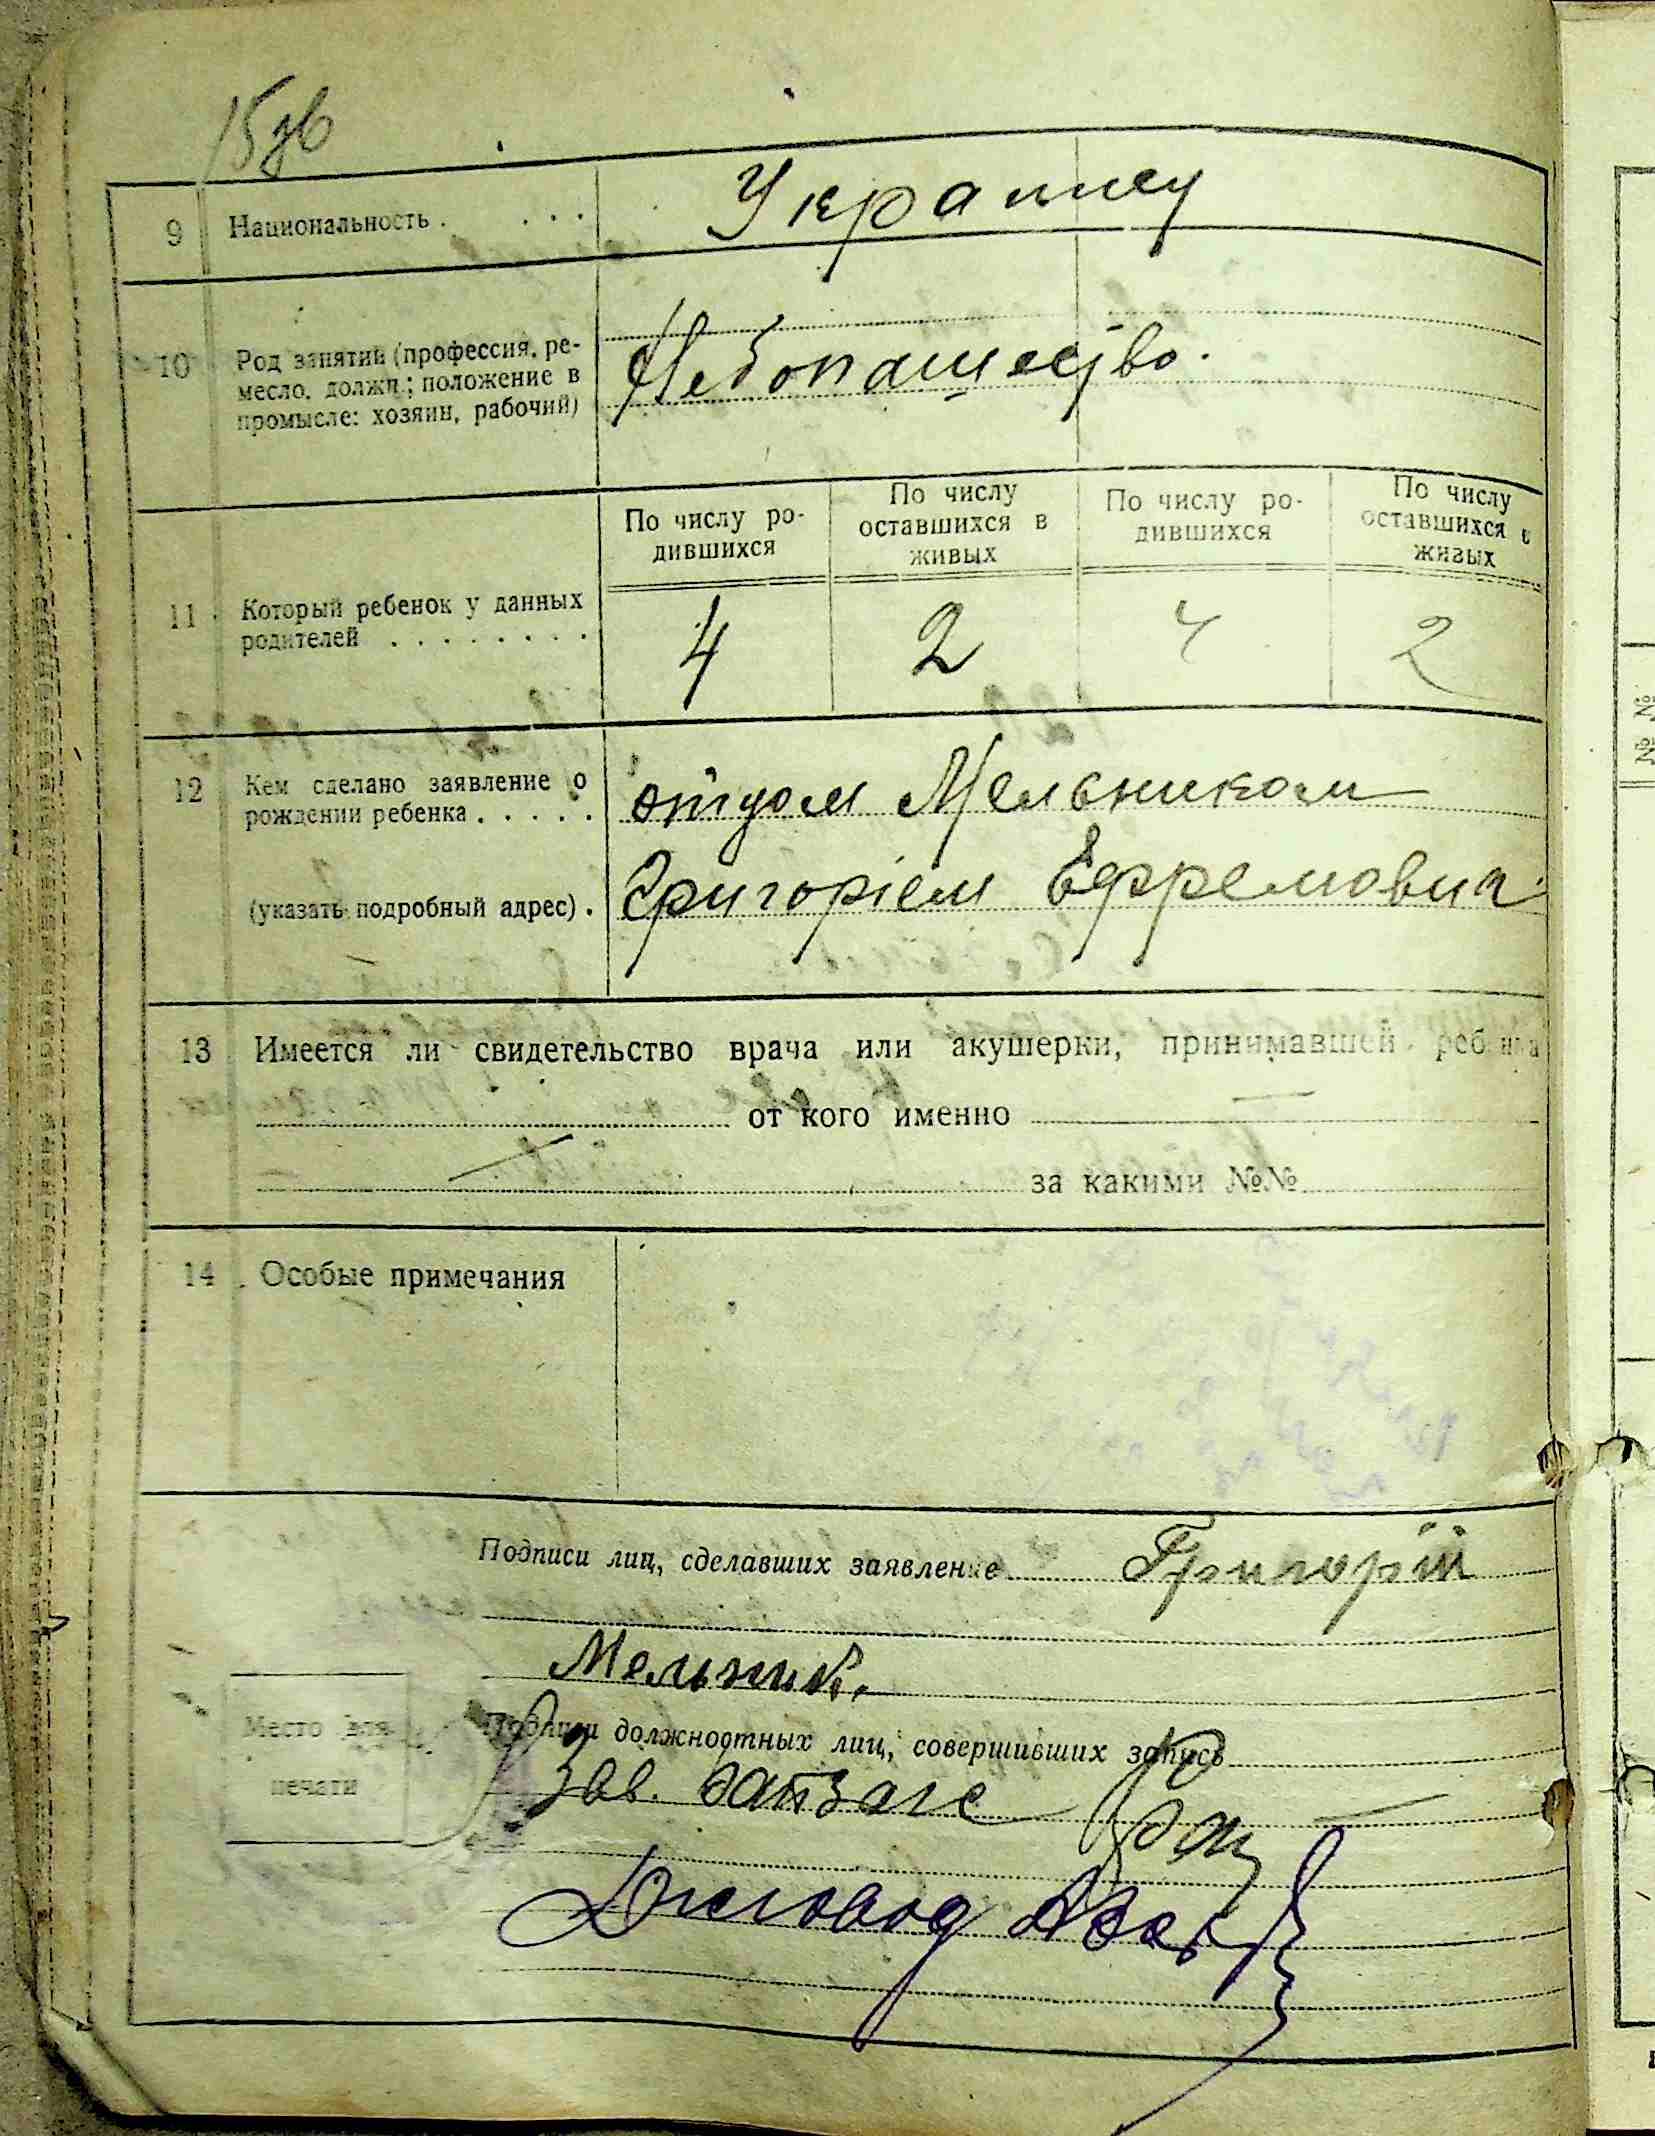 9 Национальность . . . . Украинцу
10 Род занятий (профессия, ре-
месло, должн.; положение в
промысле: хозяин, рабочий)
Хлебопашество.
11 Который ребенок у данных
родителей . . . . . . . .
По числу ро-
дившихся
По числу
оставшихся в
живых
По числу ро-
дившихся
По числу
оставшихся в
живых
4 2 4 2
12 Кем сделано заявление о
рождении ребенка . . . . .
(указать подробный адрес) .
отцом Мельником
Григоріем Ефремович
13 Имеется ли свидетельство врача или акушерки, принимавшей ребенка
от кого именно —
— за какими №№
14 Особые примечания
Подписи лиц, сделавших заявление Григорій
Мельник.
Подписи должностных лиц, совершивших запись
Место для
печати
Зав.
Діловод